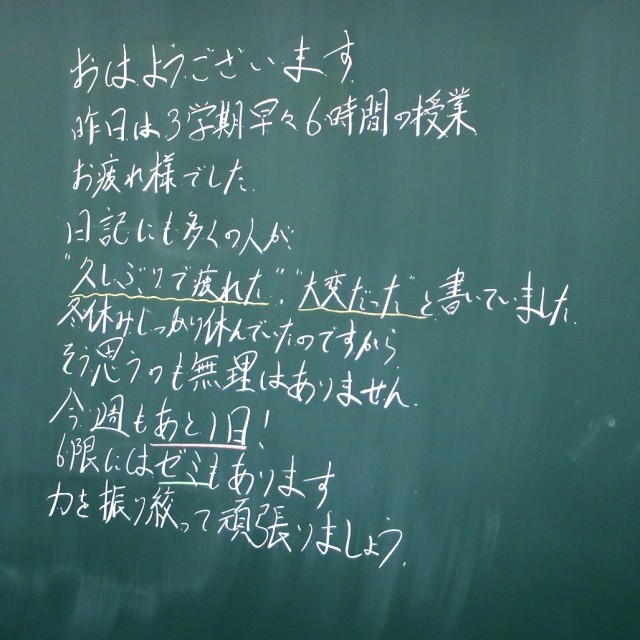 おはようございます
昨日は3学期早々6時間の授業
お疲れ様でした。
日記にも多くの人が
"久しぶりで疲れた"、"大変だった"と書いていました。
冬休みしっかり休んでいたのですから
そう思うのも無理はありません。
今週もあと1日!
6限にはゼミもあります
力を振り絞って頑張りましょう。